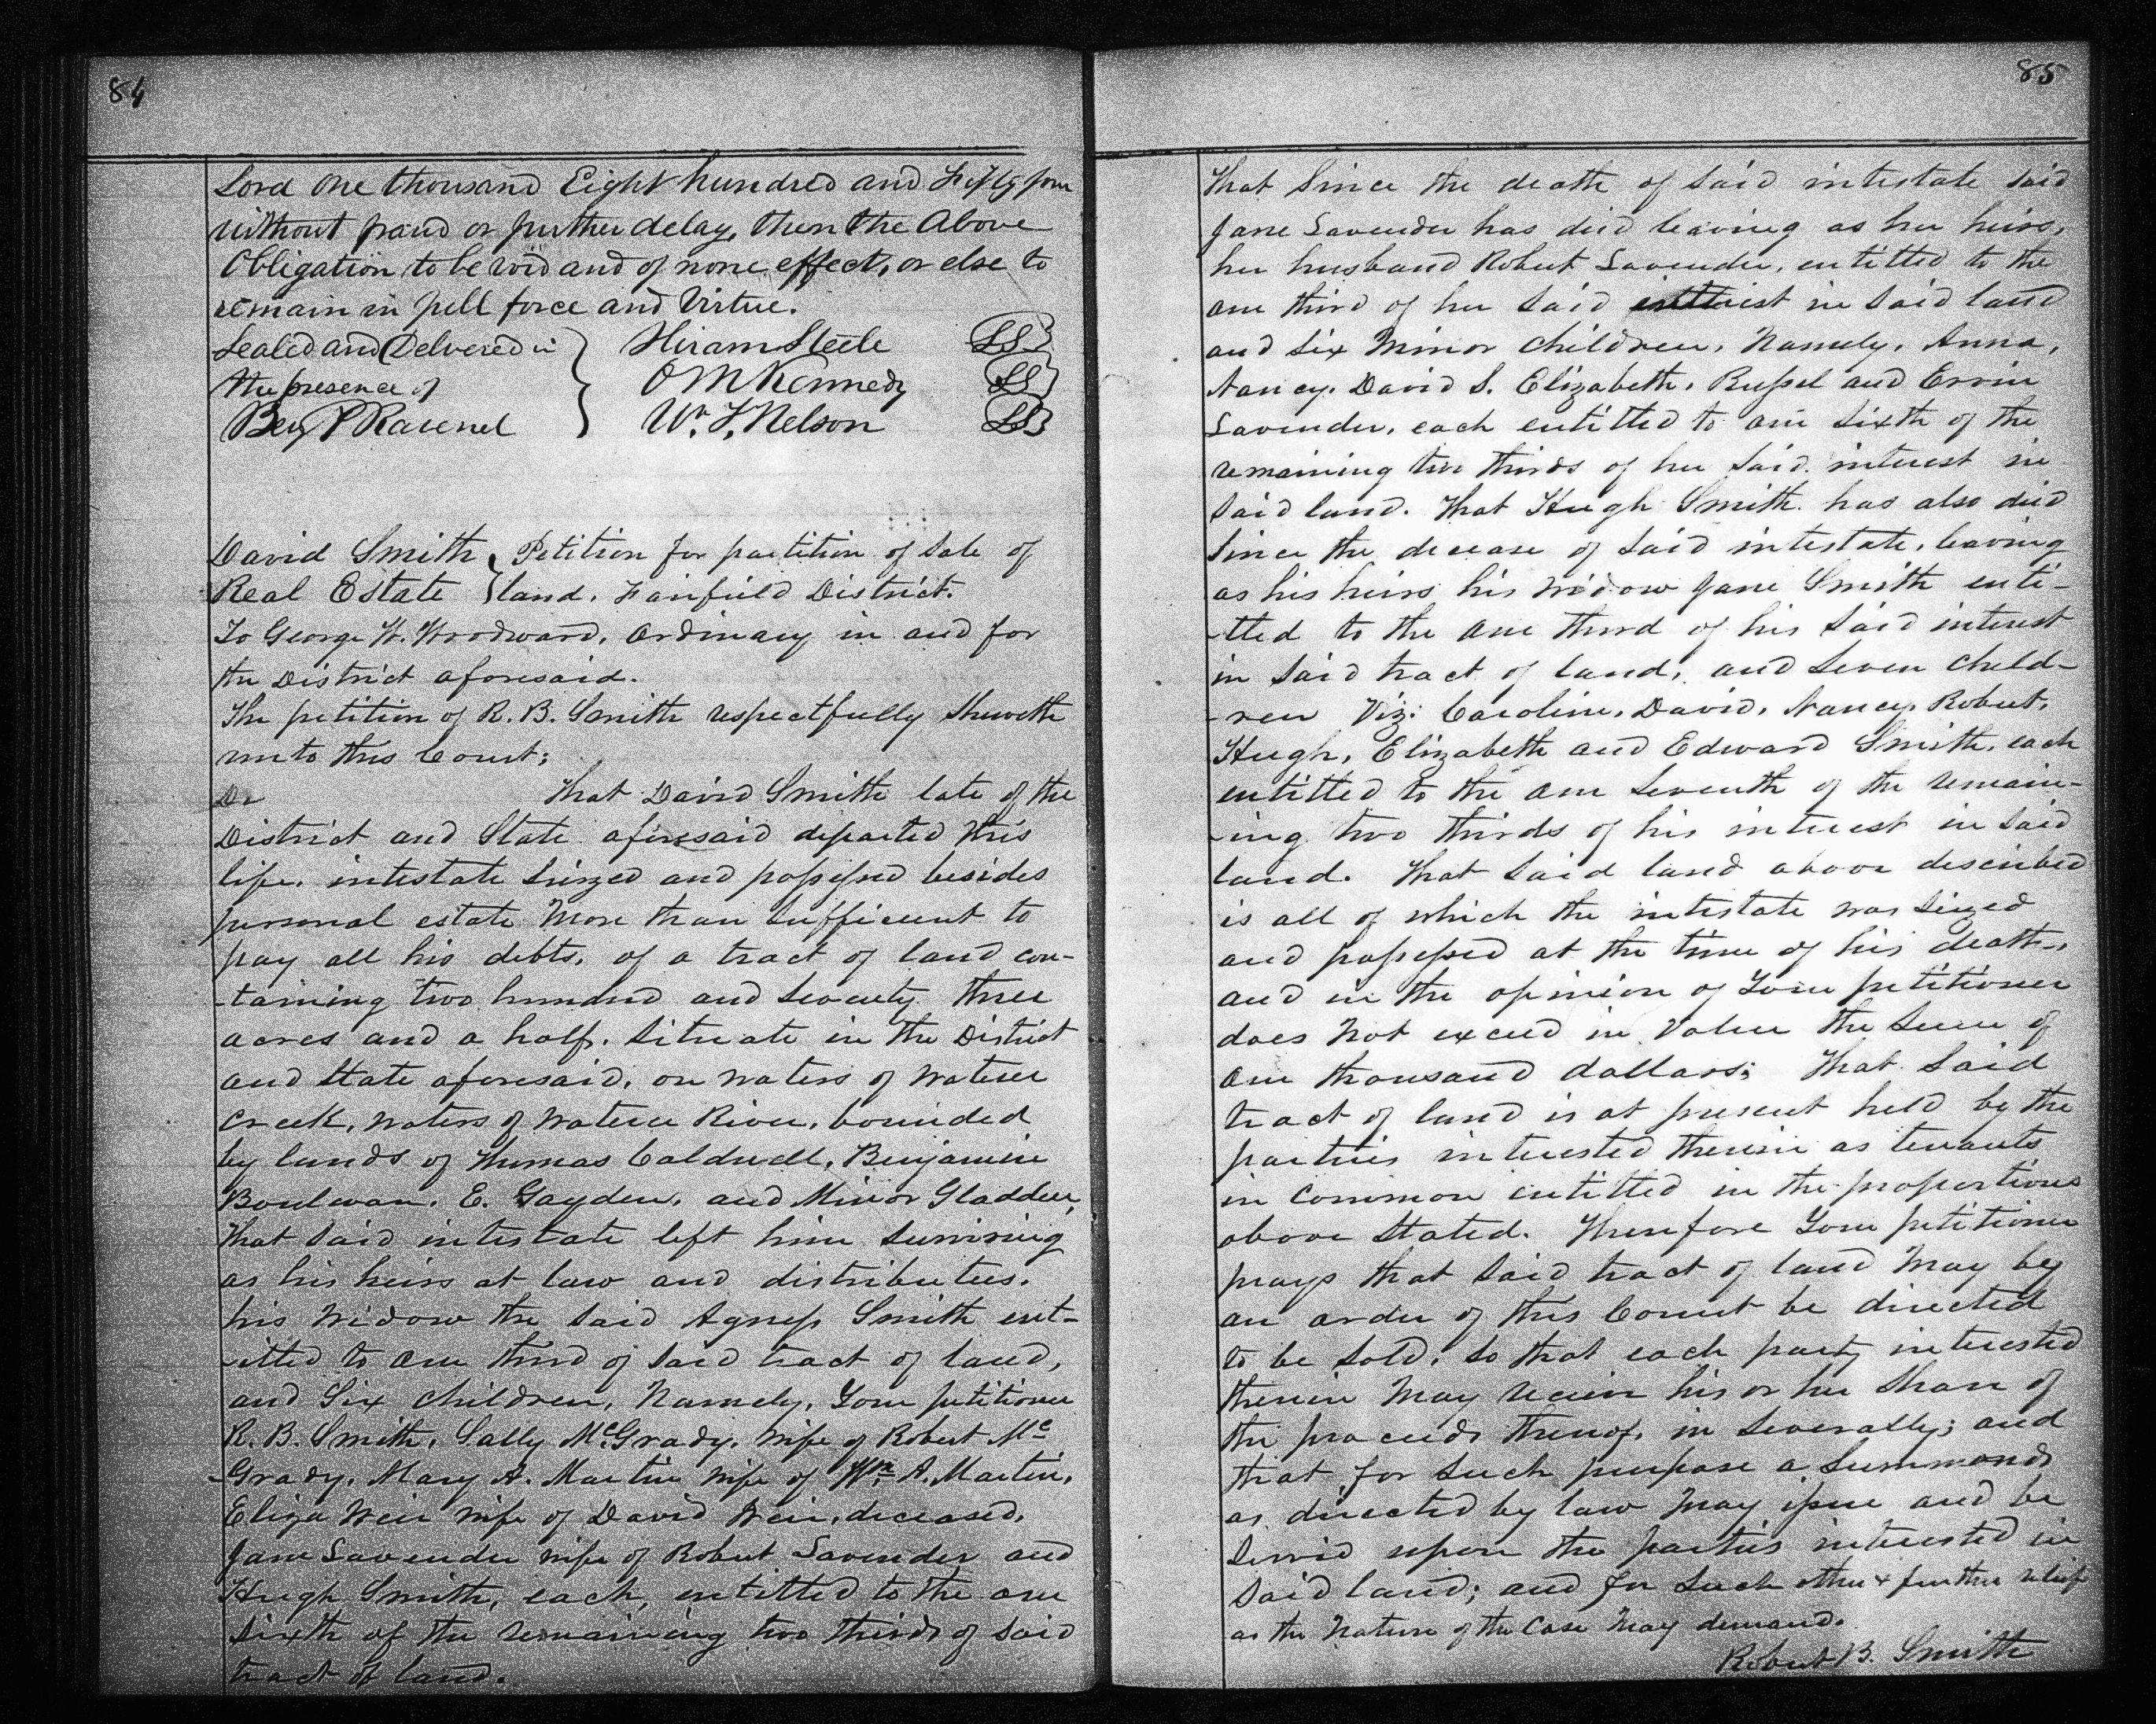 84
Lord One thousand Eight hundred and Fifty four
without fraud or further delay, then the Above
Obligation to be void and of none effect, or else to
remain in full force and Virtue.
Sealed and Delivered in } Hiram Steele LS
the presence of } O M Kennedy LS
Benj P Ravenel } Wm. T. Nelson LS
David Smith } Petition for partition of Sale of
Real Estate } land. Fairfield District.
To George W. Woodward, Ordinary in and for
the District aforesaid.
The petition of R. B. Smith respectfully sheweth
unto this Court;
That David Smith late of the
District and State aforesaid departed this
life, intestate Siezed and possessed besides
personal estate More than Sufficient to
pay all his debts, of a tract of land con-
-taining two hundred and Seventy three
acres and a half, Situate in the District
and State aforesaid, on waters of Wateree
Creek, waters of Wateree River, bounded
by lands of Thomas Caldwell, Benjamin
Boulwan, E. Gayden, and Minor Gladden,
That Said intestate left him Surviving
as his heirs at law and distributees,
his Widow the Said Agness Smith ent-
-itled to One third of Said tract of land,
and Six Children, Namely, Your petitioner
R. B. Smith, Sally McGrady, wife of Robert Mc
-Grady, Mary A. Martin wife of Wm. A. Martin,
Eliza Weir wife of David Weir, deceased,
Jane Lavender wife of Robert Lavender and
Hugh Smith, each, entitled to the one
Sixth of the remaining two thirds of Said
tract of land.
85
That Since the death of Said intestate Said
Jane Lavender has died leaving as her heirs,
her husband Robert Lavender, entitled to the
one third of her Said interest in Said land
and Six Minor Children, Namely, Anna,
Nancy, David S. Elizabeth, Russel and Ervin
Lavender, each entitled to one Sixth of the
remaining two thirds of her Said interest in
Said land. That Hugh Smith has also died
Since the decease of Said intestate, leaving
as his heirs his Widow Jane Smith enti-
-tled to the One third of his Said interest
in Said tract of land, and Seven Child-
-ren Viz: Caroline, David, Nancy, Robert,
Hugh, Elizabeth and Edward Smith, each
entitled to the One Seventh of the remain-
-ing two thirds of his interest in Said
land. That Said land above described
is all of which the intestate was Siezed
and possessed at the time of his death,
and in the opinion of Your petitioner
does Not exceed in Value the Sum of
One thousand dollars; That Said
tract of land is at present held by the
parties interested therein as tenants
in Common entitled in the proportions
above Stated. Therefore Your petitioner
prays that Said tract of land May by
an order of this Court be directed
to be Sold, So that each party interested
therein May receive his or her Share of
the proceeds thereof, in Severalty; and
that for Such purpose a Summons
as directed by law May issue and be
Served upon the parties interested in
Said land; and for Such other & further relief
as the Nature of the Case May demand.
Robert B. Smith